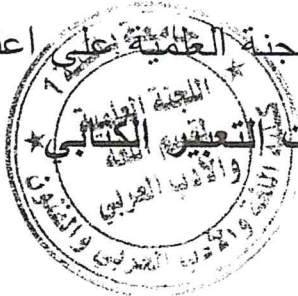 جنة العلمية على اعـ
التعبير الكتابي
اللجنة العلمية
لقسم اللغة
والأدب العربي
اللغة والأدب العربي والفنون